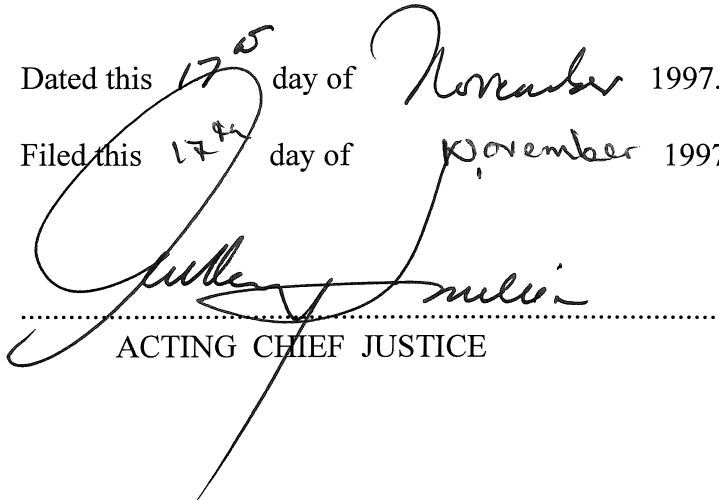 Dated this 17th day of November 1997.
Filed this 17th day of November 1997
ACTING CHIEF JUSTICE